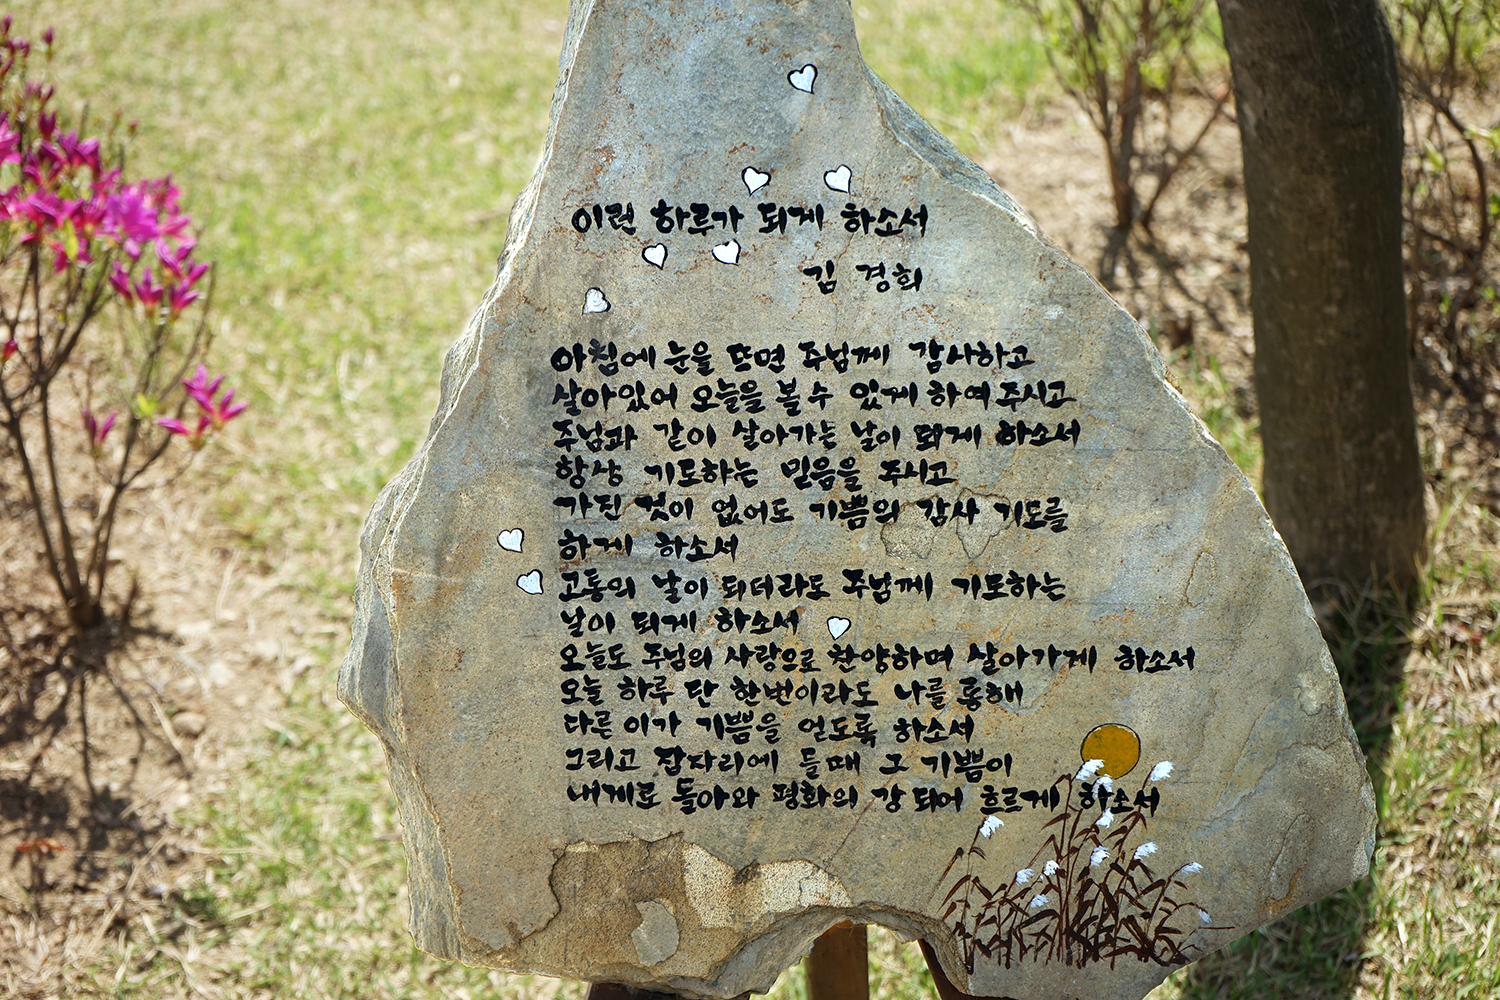 이런 하루가 되게 하소서
김 경희
아침에 눈을 뜨면 주님께 감사하고
살아있어 오늘을 볼 수 있게 하여 주시고
주님과 같이 살아가는 날이 되게 하소서
항상 기도하는 믿음을 주시고
가진 것이 없어도 기쁨의 감사 기도를
하게 하소서
고통의 날이 되더라도 주님께 기도하는
날이 되게 하소서
오늘도 주님의 사랑으로 찬양하며 살아가게 하소서
오늘 하루 단 한번이라도 나를 통해
다른 이가 기쁨을 얻도록 하소서
그리고 잠자리에 들때 그 기쁨이
내게로 돌아와 평화의 강 되어 흐르게 하소서